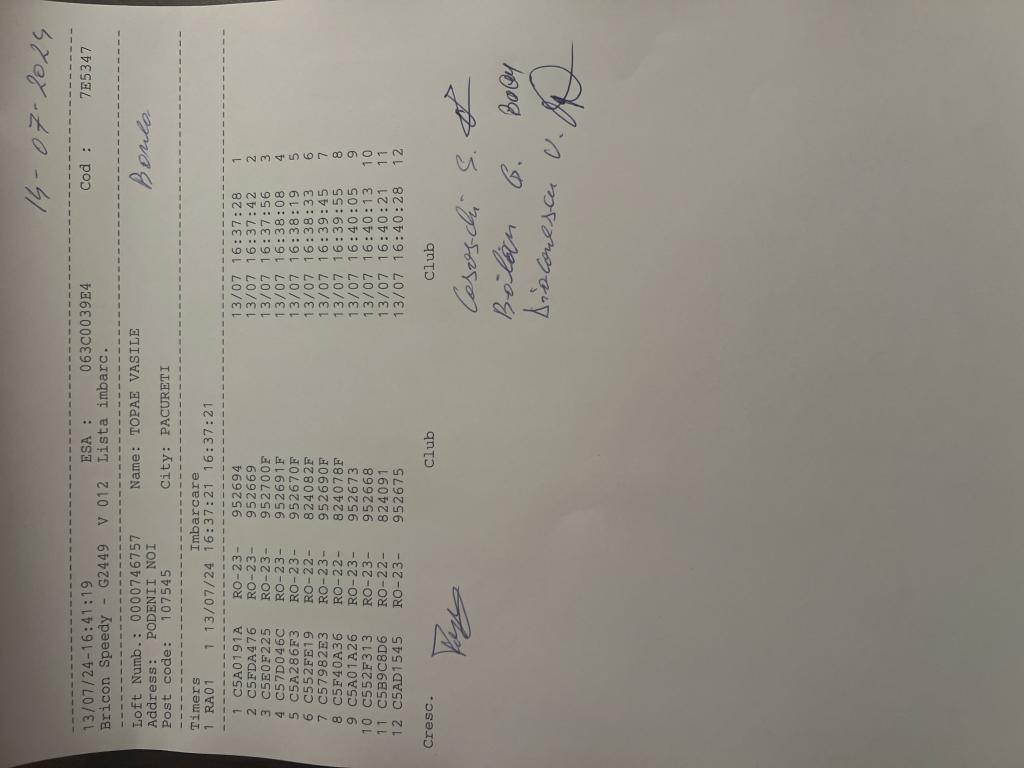 14-07-2024
13/07/24-16:41:19 ESA : 063C0039E4 Cod : 7E5347
Bricon Speedy - G2449 V 012 Lista imbarc.
Loft Numb.: 0000746757 Name: TOPAE VASILE
Address: PODENII NOI
Post code: 107545 City: PACURETI
Timers Imbarcare
1 RA01 1 13/07/24 16:37:21 16:37:21
1 C5A0191A RO-23- 952694 13/07 16:37:28 1
2 C5FDA476 RO-23- 952669 13/07 16:37:42 2
3 C5E0F225 RO-23- 952700F 13/07 16:37:56 3
4 C57D046C RO-23- 952691F 13/07 16:38:08 4
5 C5A286F3 RO-23- 952670F 13/07 16:38:19 5
6 C552FE19 RO-22- 824082F 13/07 16:38:33 6
7 C57982E3 RO-23- 952690F 13/07 16:39:45 7
8 C5F40A36 RO-22- 824078F 13/07 16:39:55 8
9 C5A01A26 RO-23- 952673 13/07 16:40:05 9
10 C552F313 RO-23- 952668 13/07 16:40:13 10
11 C5B9C8D6 RO-22- 824091 13/07 16:40:21 11
12 C5AD1545 RO-23- 952675 13/07 16:40:28 12
Cresc. Club Club
S.
Bălan G.
Diaconescu V.